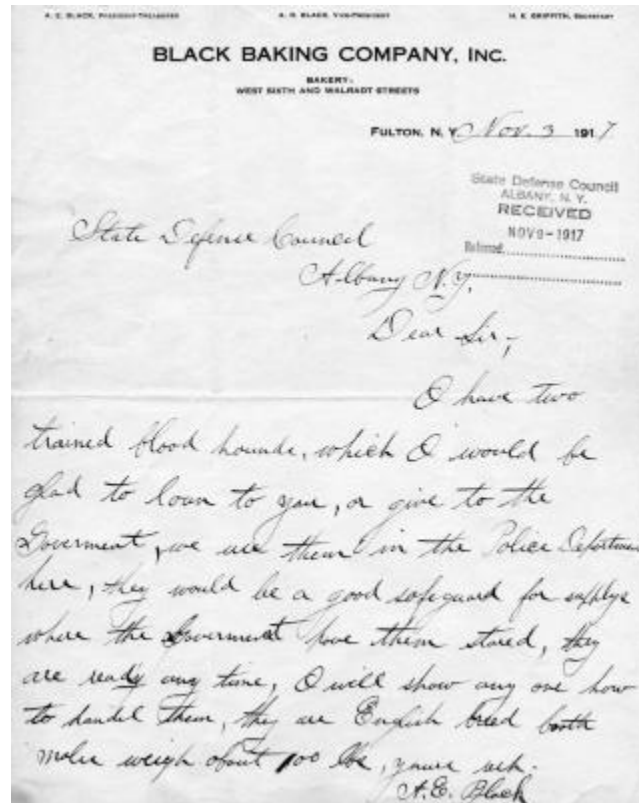 A. E. BLACK, PRESIDENT-TREASURER A. H. BLACK, VICE-PRESIDENT H. E. GRIFFITH, SECRETARY
BLACK BAKING COMPANY, INC.
BAKERY:
WEST SIXTH AND WALRADT STREETS
FULTON, N. Y. Nov. 3 1917
State Defense Council
ALBANY, N. Y.
RECEIVED
NOV 9-1917
Referred
State Defense Council
Albany N.Y.
Dear Sir,
I have two
trained blood hounds, which I would be
glad to loan to you, or give to the
Goverment, we use them in the Police Department
here, they would be a good safeguard for
where the Goverment have them stored, they
are ready any time, I will show any one how
to handel them, they are English breed booth
males weigh about 100 lbs, yours
A.E. Black